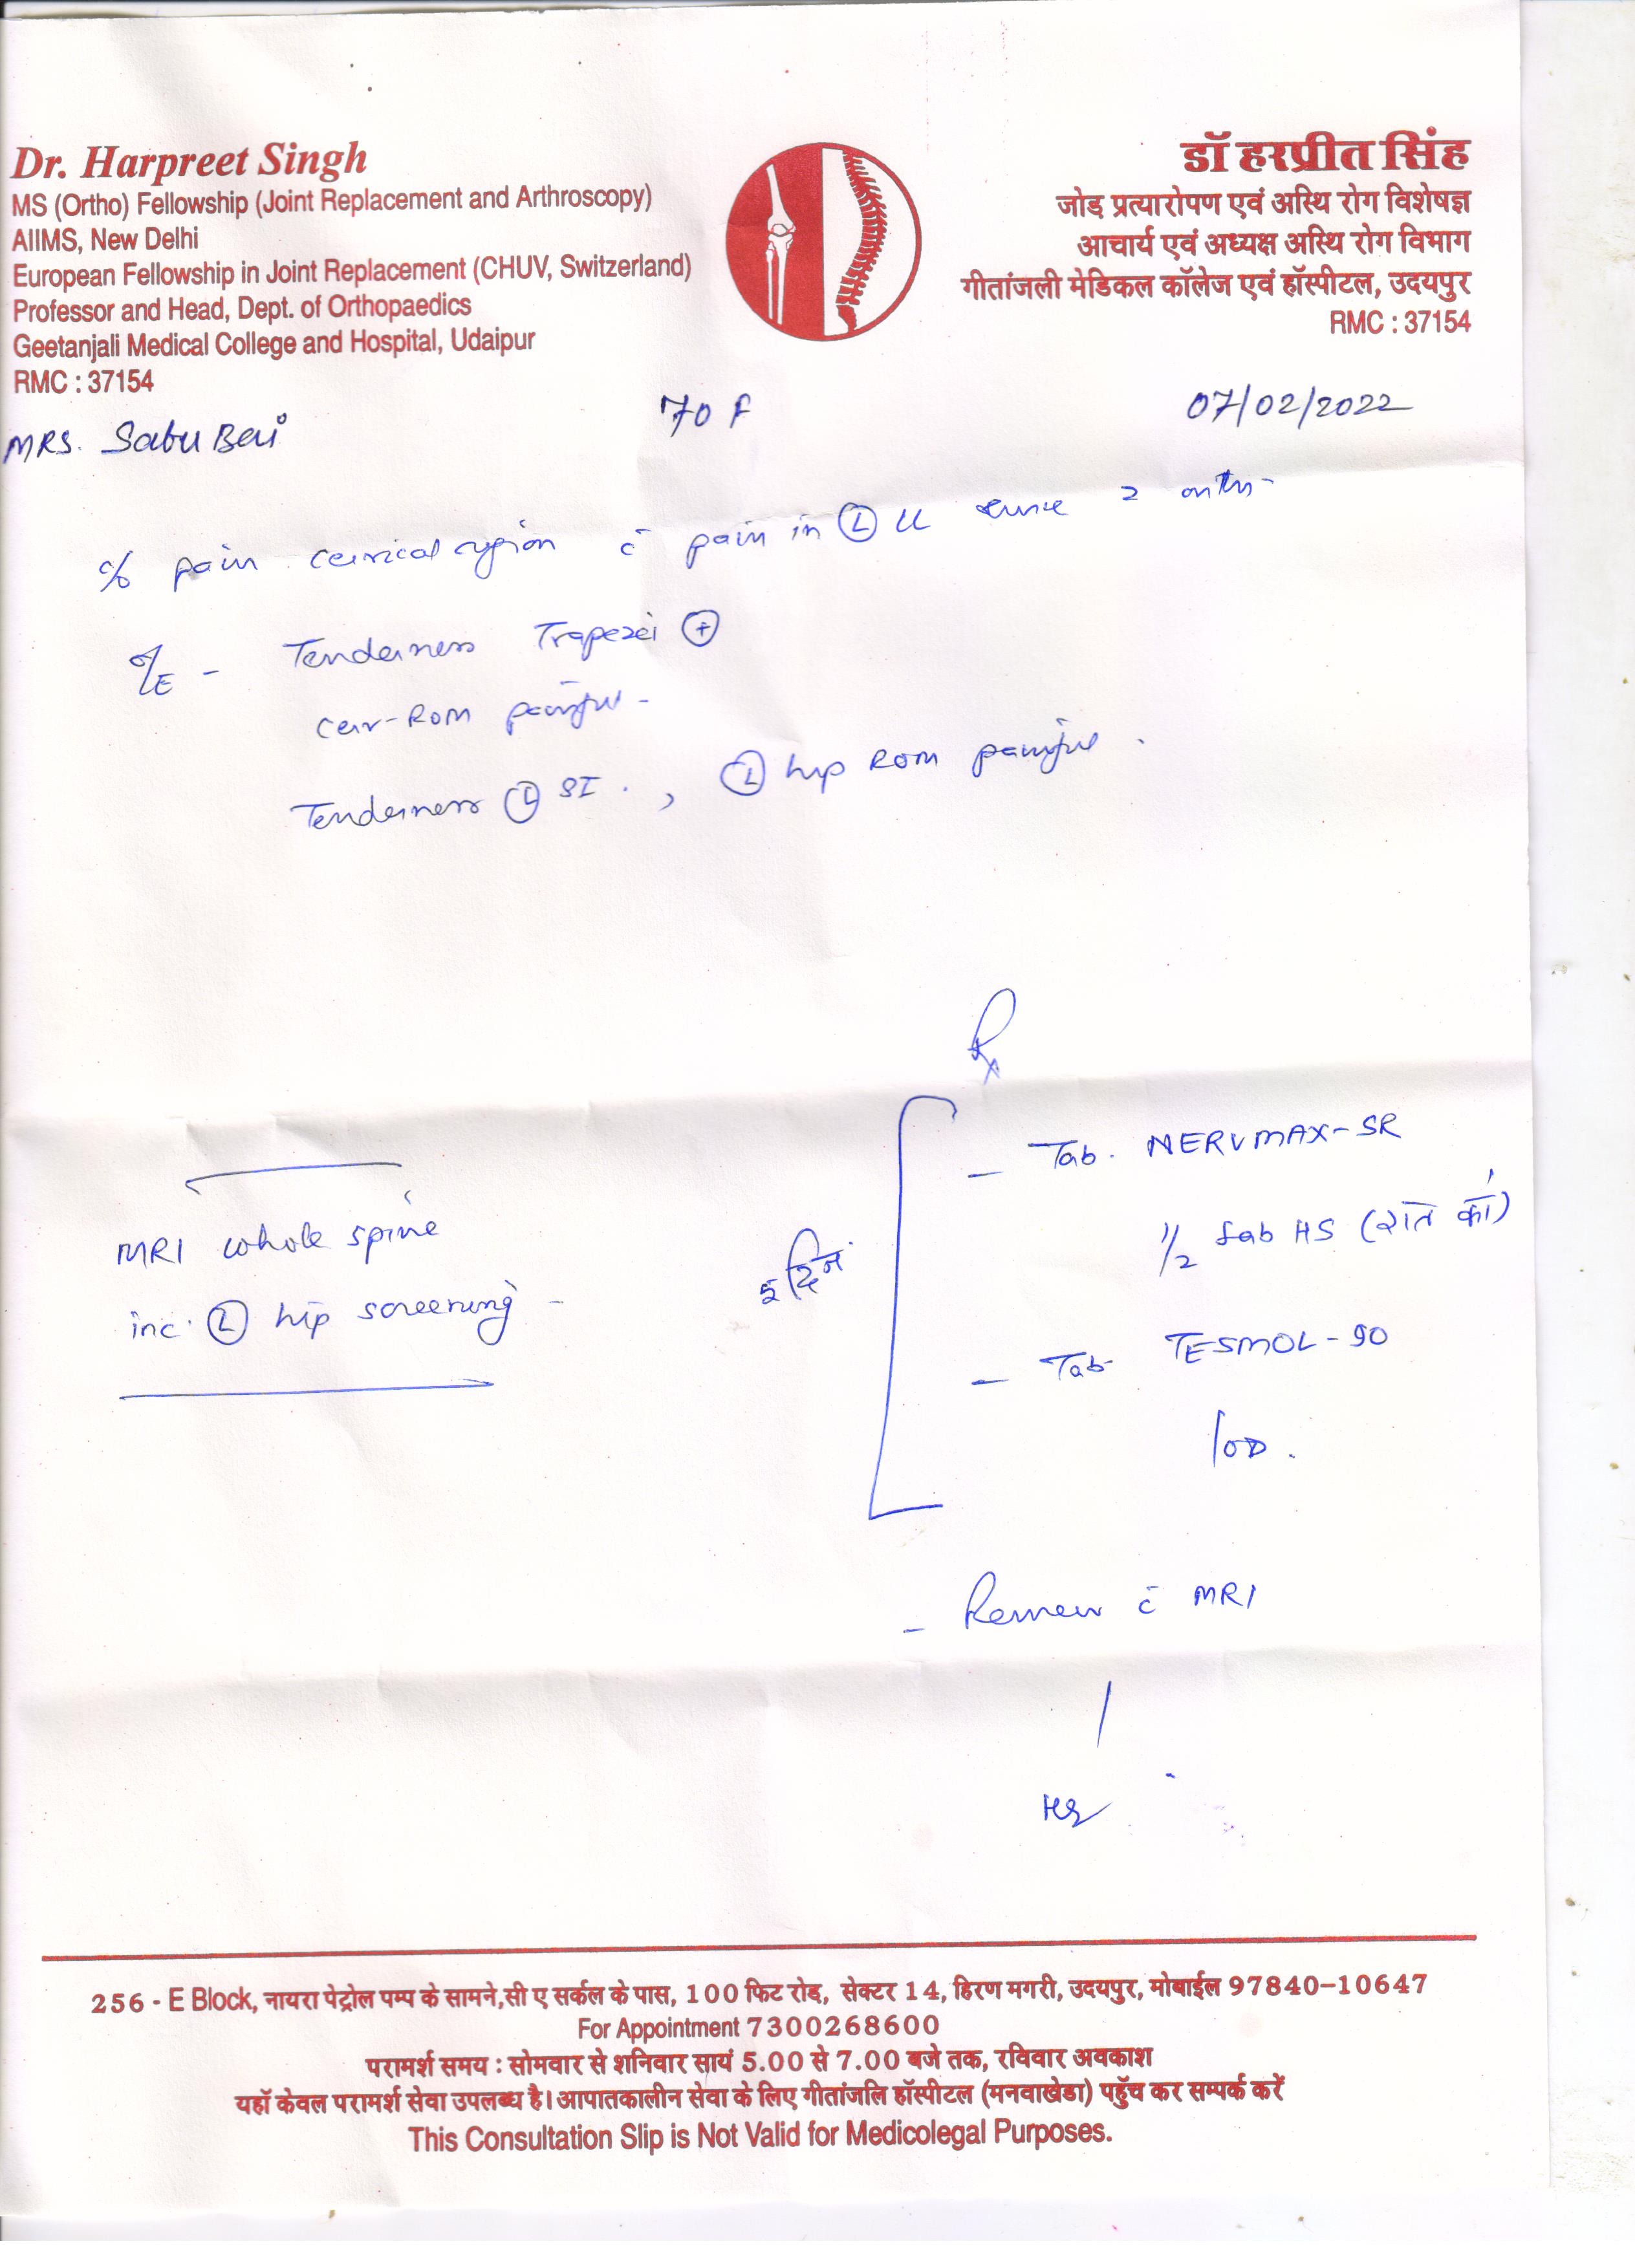 Dr. Harpreet Singh
MS (Ortho) Fellowship (Joint Replacement and Arthroscopy)
AIIMS, New Delhi
European Fellowship in Joint Replacement (CHUV, Switzerland)
Professor and Head, Dept. of Orthopaedics
Geetanjali Medical College and Hospital, Udaipur
RMC : 37154
डॉ हरप्रीत सिंह
जोड़ प्रत्यारोपण एवं अस्थि रोग विशेषज्ञ
आचार्य एवं अध्यक्ष अस्थि रोग विभाग
गीतांजली मेडिकल कॉलेज एवं हॉस्पीटल, उदयपुर
RMC : 37154
MRS. Sabu Bai 70 F 07/02/2022
c/o pain cervical region c̄ pain in Ⓛ LL since 2 mths-
O/E - Tenderness Trapezei ⊕
Cerv-ROM painful -
Tenderness Ⓛ SI. , Ⓛ hip ROM painful.
MRI whole spine
inc. Ⓛ hip screening -
Rx
- Tab. NERVMAX-SR
1/2 tab HS (रात को)
5 दिन
- Tab- TESMOL-90
1 OD.
- Review c̄ MRI
256 - E Block, नायरा पेट्रोल पम्प के सामने,सी ए सर्कल के पास, 100 फिट रोड़, सेक्टर 14, हिरण मगरी, उदयपुर, मोबाईल 97840-10647
For Appointment 7300268600
परामर्श समय : सोमवार से शनिवार सायं 5.00 से 7.00 बजे तक, रविवार अवकाश
यहाँ केवल परामर्श सेवा उपलब्ध है। आपातकालीन सेवा के लिए गीतांजलि हॉस्पीटल (मनवाखेडा) पहुँच कर सम्पर्क करें
This Consultation Slip is Not Valid for Medicolegal Purposes.